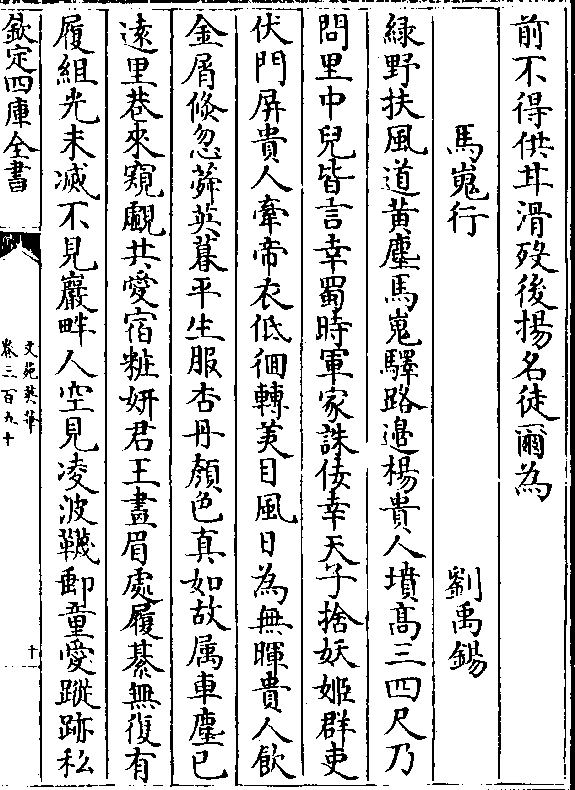 前不得供耳滑歿後揚名徒爾為
馬嵬行 劉禹錫
緑野扶風道黄塵馬嵬驛路邉楊貴人墳髙三四尺乃
問里中兒皆言幸蜀時軍家誅佞幸天子捨妖姬群吏
伏門屏貴人牽帝衣低徊轉美目風日為無暉貴人飲
金屑倐忽蕣英暮平生服杏丹顔色真如故属車塵已
逺里巷來窺覰共愛宿粧妍君王畫眉處履綦無復有
履組光未滅不見巖畔人空見凌波韈郵童愛蹤跡私
欽定四庫全書
文苑英華
卷三百九十
十